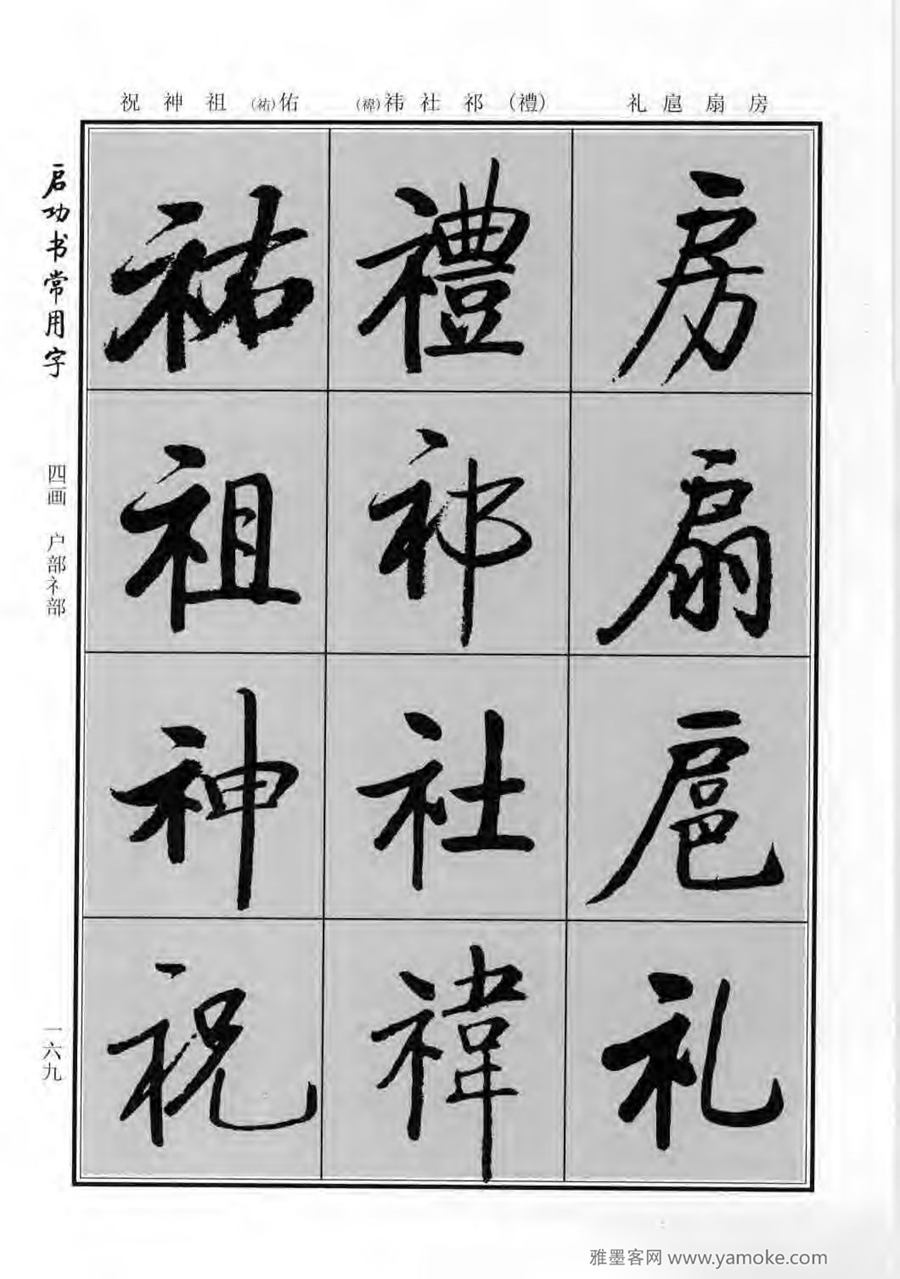 祝 神 祖 (祐)佑 (禕)祎 社 祁 (禮) 礼 扈 扇 房
启功书常用字
四画 户部礻部
一六九
房
扇
扈
礼
禮
祁
社
禕
祐
祖
神
祝
雅墨客网 www.yamoke.com